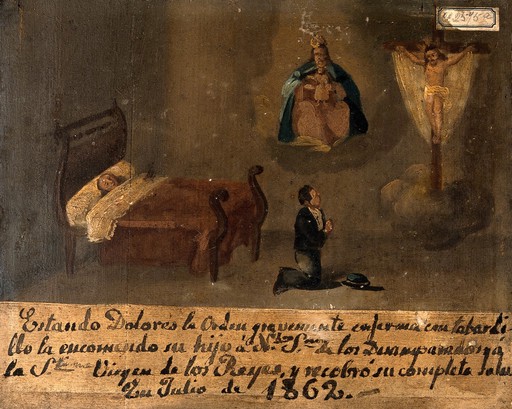 Estando Dolores la Orden gravemente enferma con tabardi
llo la encomendo su hijo á N.tra S.ra de los Desamparados y á
la S.tisima Virgen de los Reyes, y recobró su completa salud
En Julio de 1862.-